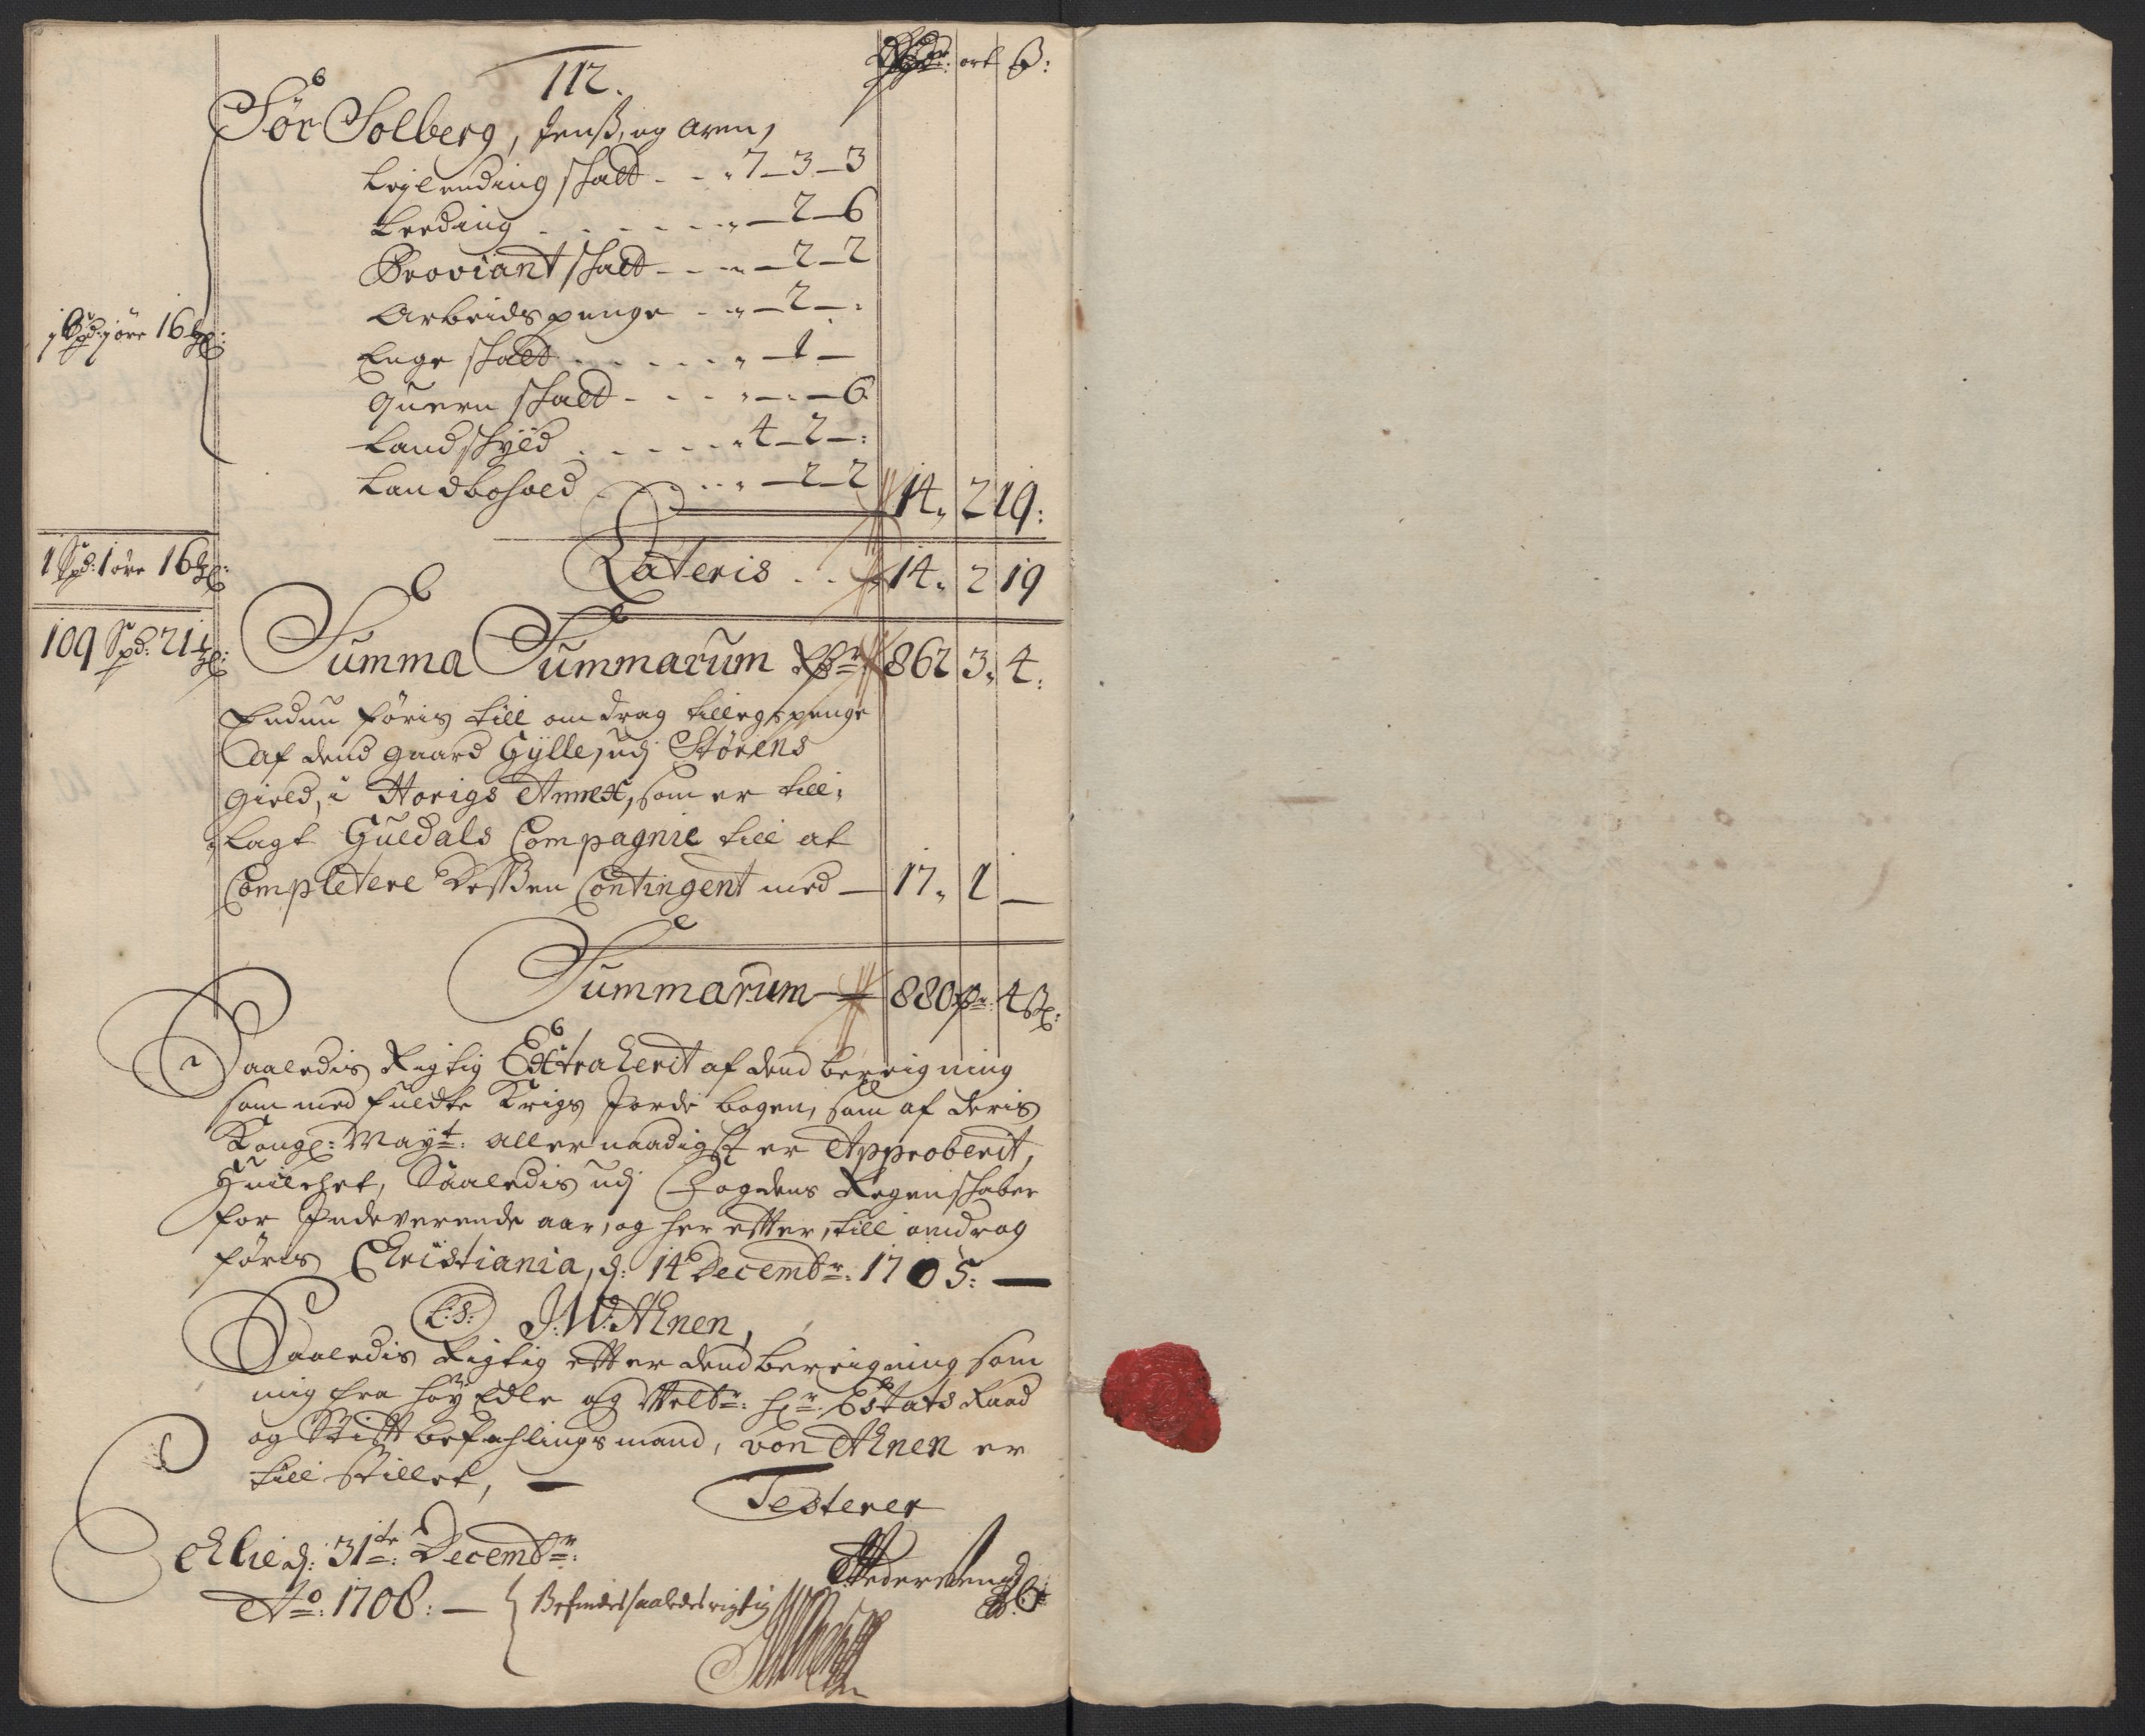 112.
Rdr: ort ß:
Sør Solberg, Jenß, og Aren,
Leylending skatt - - 7 - 3 - 3
Leeding - - - - - 2 - 6
Proviant skatt - - - 2 - 2
Arbeids penge - - - 2 - :
1 Spd: 1 øre 16 
Enge skatt - - - - - 1 -
Quern skatt - - - - - 6
Landskyld - - - - 4 - 2 - :
Landbohold - - - - 2 - 2
14. 2 19:
1 Spd: 1 øre 16 
Lateris - - 14. 2 19
109 Spd: 21
Summa Summarum Rdr 862 3. 4.
Endnu føris till omdrag tillegs penge
af dend gaard Gylle, udj Størens
gield, i Horigs Annex, som er till:
lagt Guldals Compagnie till at
Completere dessen Contingent med - 17. 1 -
Summarum - 880 Rdr 4 ß:
Saaledis Rigtig Extraherit af dend bereigning
som med fuldte Krigs Jorde bogen, som af deris
Kongl: Mayt: allernaadigst er Approberit,
Huilchet, Saaledis udj Fogdens Regenskaber
for Indeverende aar, og her effter, till omdrag
føris Christiania, d: 14 Decembr: 1705: -
L:S: J: V: Ahnen,
Saaledis Rigtig effter dend bereigning som
mig fra høy Edle og Welbr: Hr: Estats Raad
og Stifft befahlings mand, von Ahnen er
till stillet, -
Testerer
Elie d: 31te: Decembr:
Ao: 1708: -
Befindes saaledes rigtig